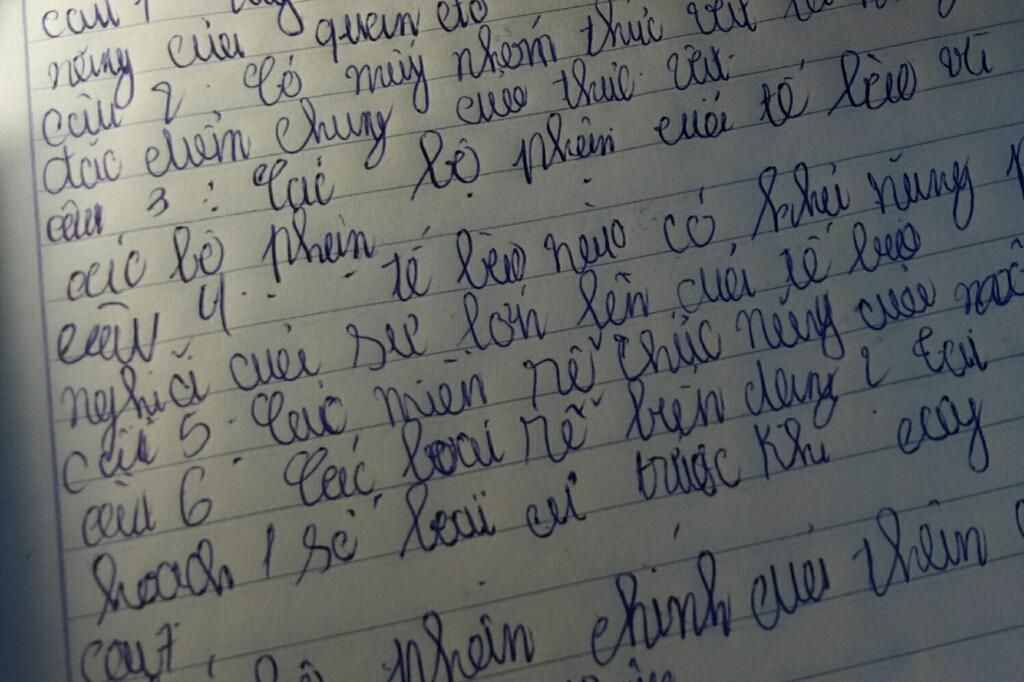 câu 1
năng của quan sát
câu 2. Có mấy nhóm thực vật
đặc điểm chung của thực vật
câu 3: Các bộ phận của tế bào và
các bộ phận
câu 4: tế bào nào có khả năng
nghĩa của sự lớn lên của tế bào
câu 5. Các miền rễ chức năng của
câu 6 Các loại rễ biến dạng ? tại
hoạch 1 số loại củ trước khi cây
câu 7. phận chính của thân